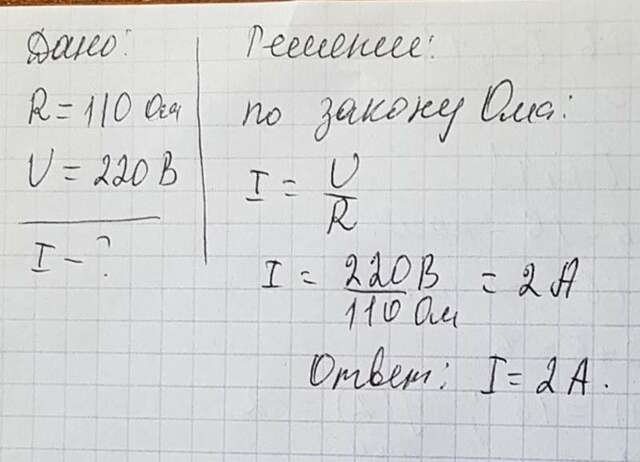 Дано:
R = 110 Ом
U = 220 В
I - ?
Решение:
по закону Ома:
I = U/R
I = 220 В/110 Ом = 2 А
Ответ: I = 2 А.